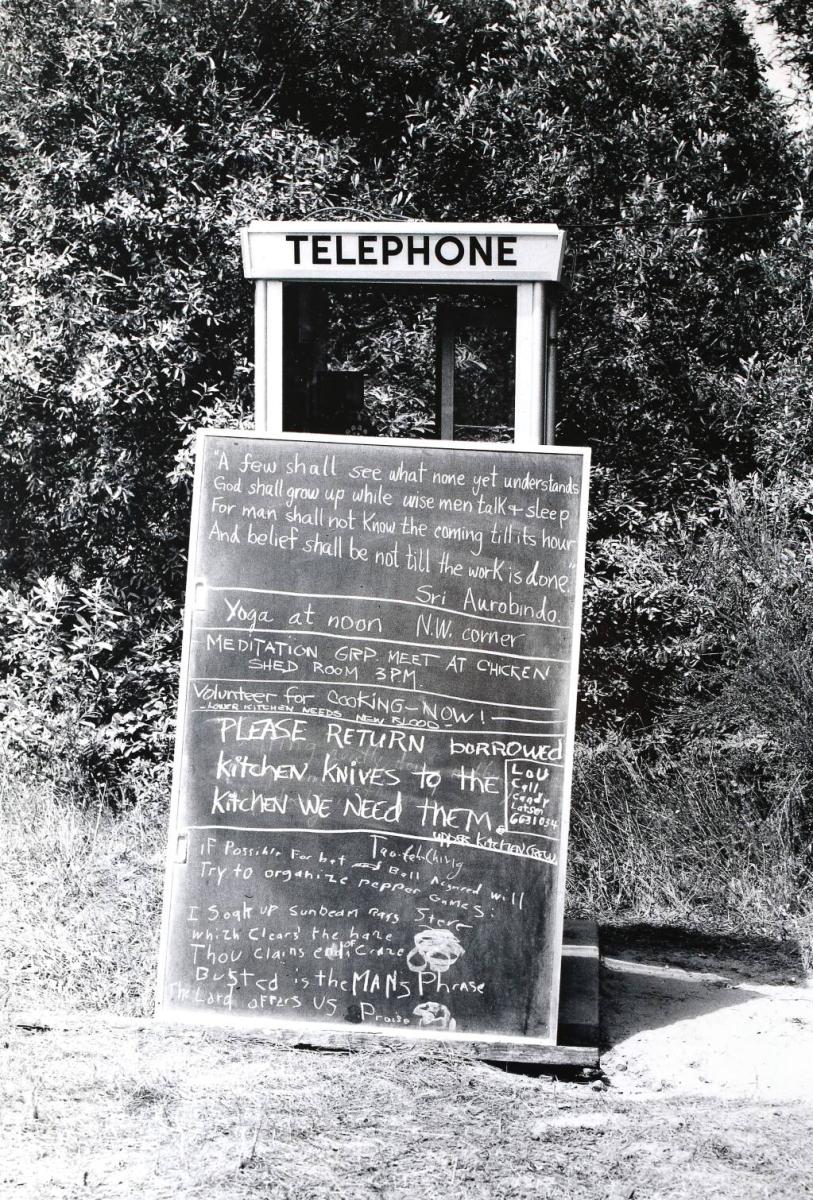 TELEPHONE
"A few shall see what none yet understands
God shall grow up while wise men talk + sleep
For man shall not Know the coming till its hour
And belief shall be not till the work is done."
Sri Aurobindo.
Yoga at noon N.W. corner
MEDITATION GRP. MEET AT CHICKEN
SHED ROOM 3PM.
Volunteer for COOKING-NOW!
-LOWER KITCHEN NEEDS NEW BLOOD-
PLEASE RETURN borrowed
kitchen knives to the
kitchen WE NEED THEM.
Lou
Call
Candy
Larson
6631034
UPPER KITCHEN CREW
Tao-teh-Ching
iF Possible For bat and Ball Required will
Try to organize pepper Games:
Steve
I Soak up Sunbeam Rays
which Clears the haze
Thou claims of Craze
Busted is the MAN's Phrase
The Lord offers US Praise